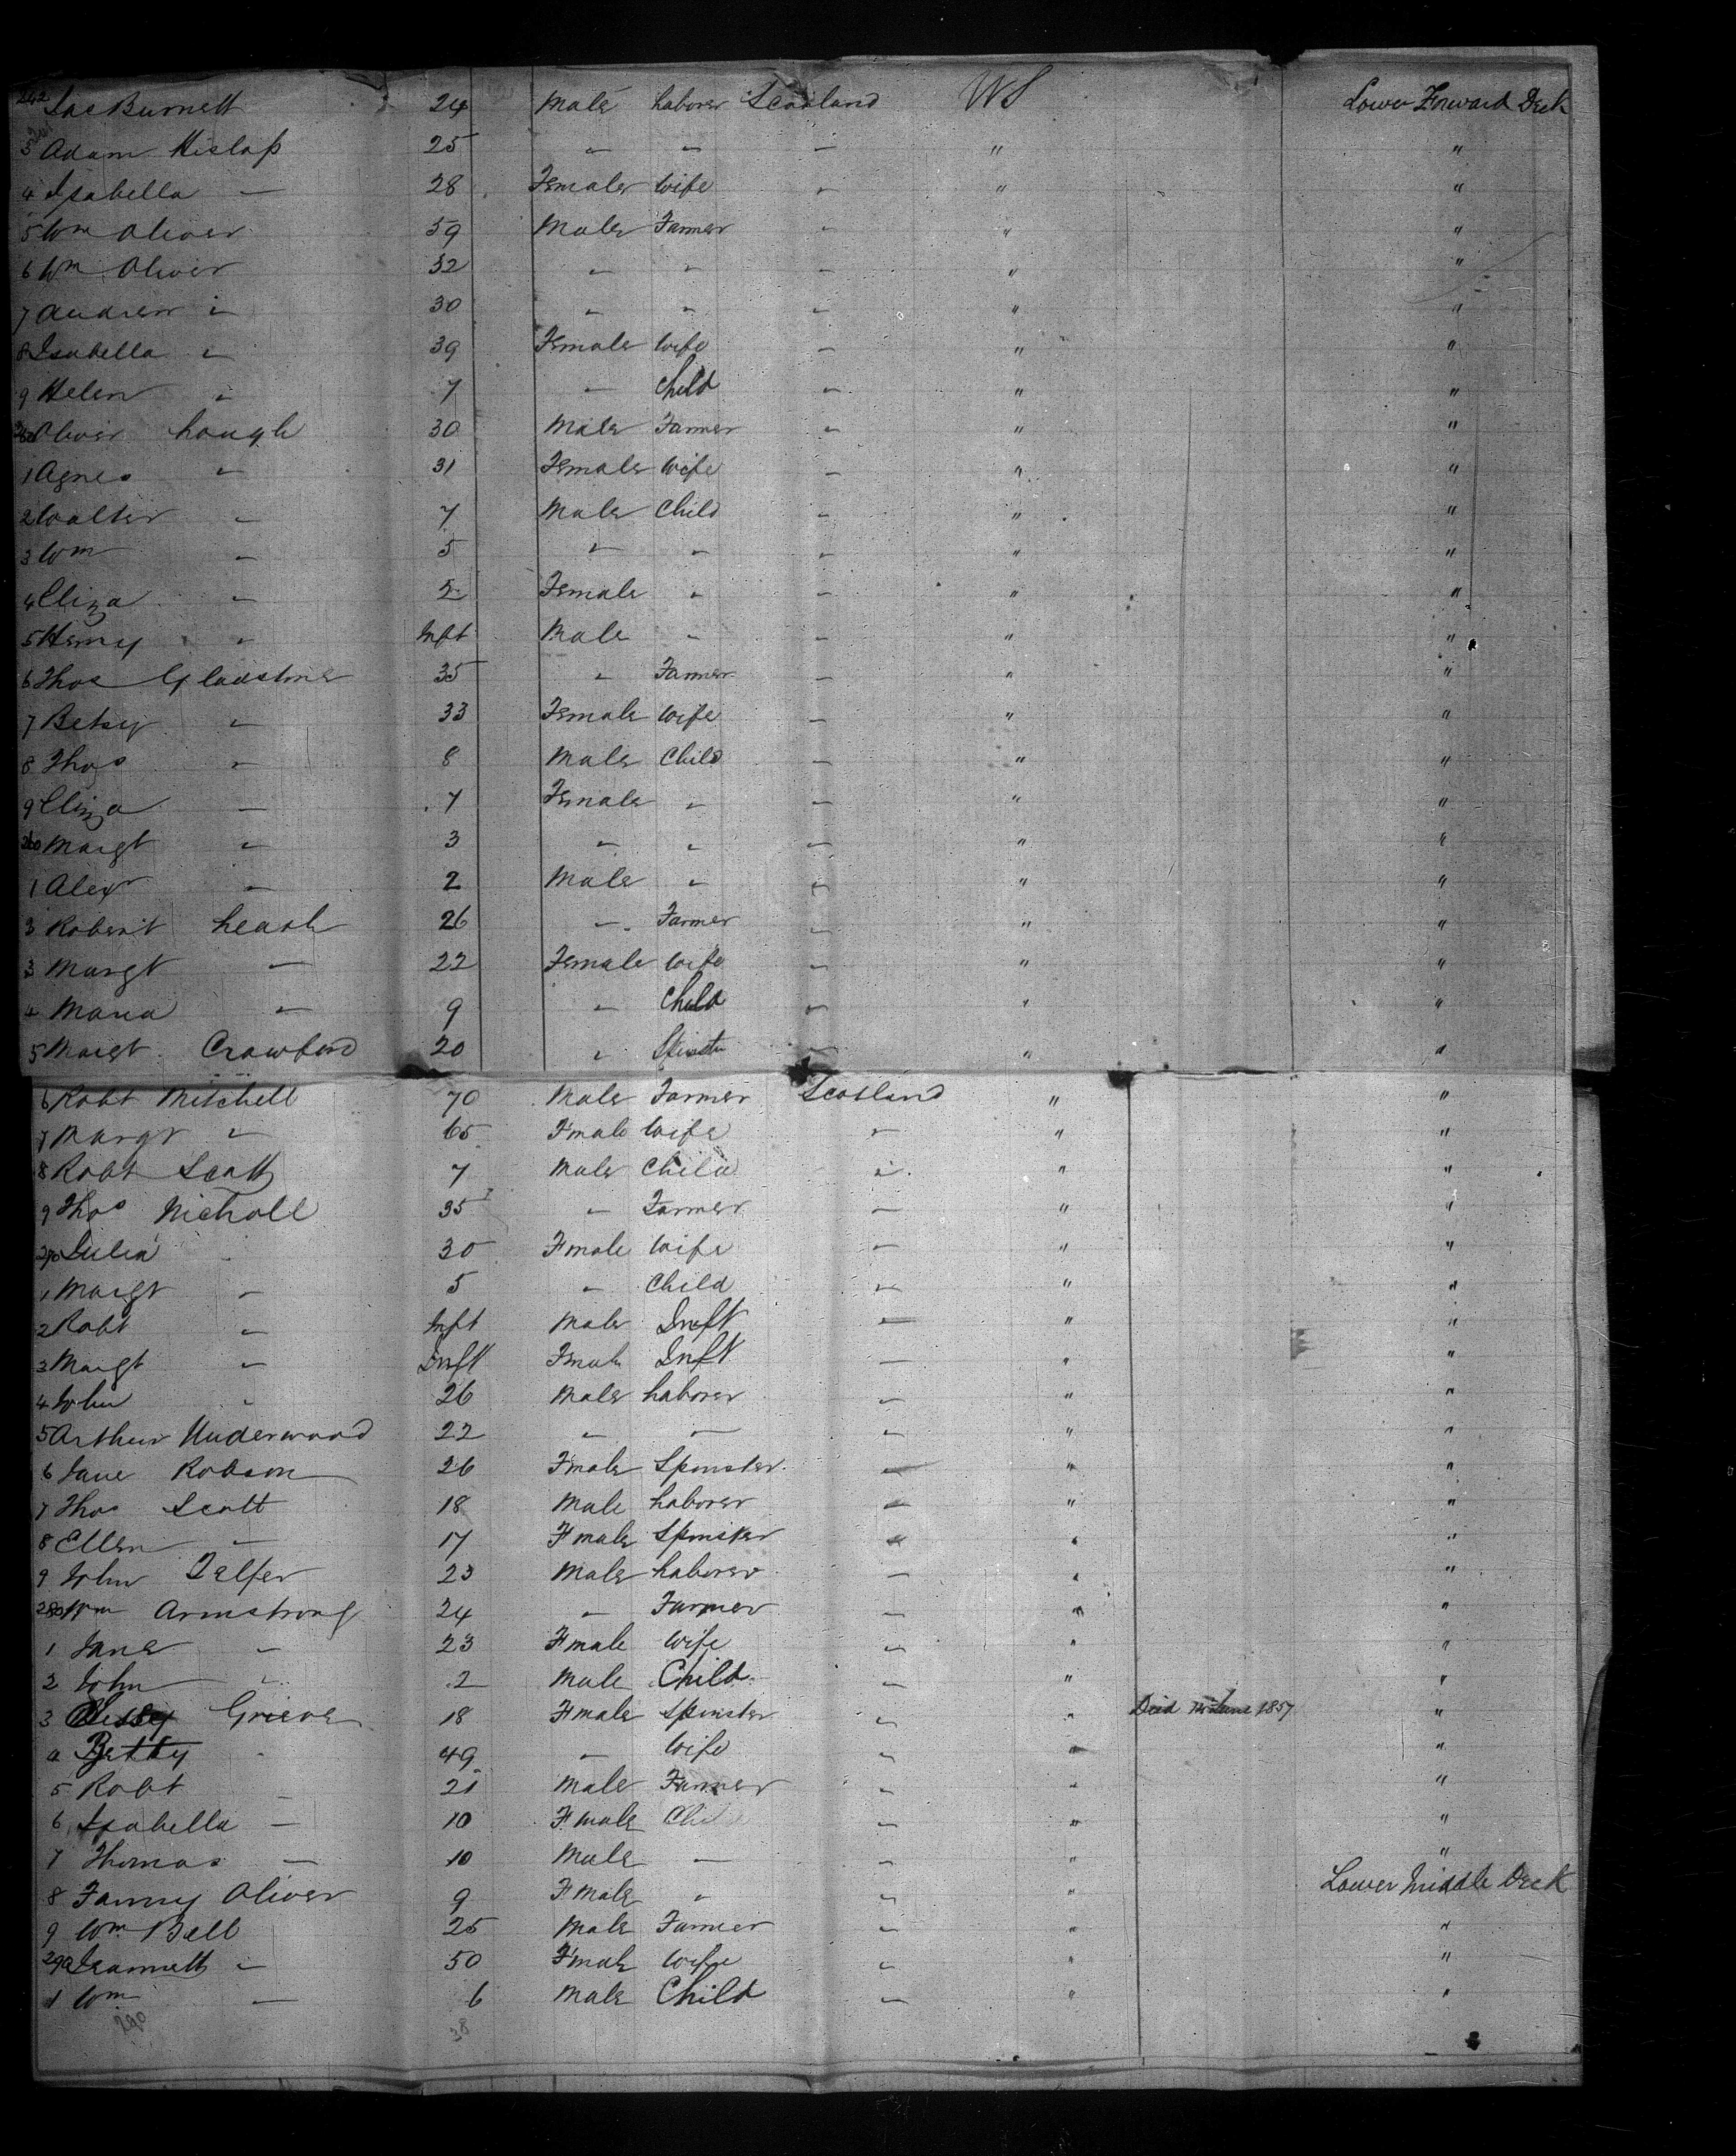 242 Jas Burnett 24 Male Laborer Scotland WS Lower Forward Deck
3 Adam Hislop 25 " " " " "
4 Isabella " 28 Female Wife " " "
5 Wm Oliver 59 Male Farmer " " "
6 Wm Oliver 32 " " " " "
7 Andrew " 30 " " " " "
8 Isabella " 39 Female Wife " " "
9 Helen " 7 " Child " " "
250 Oliver Lough 30 Male Farmer " " "
1 Agnes " 31 Female Wife " " "
2 Walter " 7 Male Child " " "
3 Wm " 5 " " " " "
4 Eliza " 2 Female " " " "
5 Henry " Inft Male " " " "
6 Thos Gladstone 35 " Farmer " " "
7 Betsy " 33 Female Wife " " "
8 Thos " 8 Male Child " " "
9 Eliza " 7 Female " " " "
260 Margt " 3 " " " " "
1 Alexr " 2 Male " " " "
3 Robert Leash 26 " Farmer " " "
3 Margt " 22 Female Wife " " "
4 Maria " 9 " Child " " "
5 Margt Crawford 20 " Spinster " " "
6 Robt Mitchell 70 Male Farmer Scotland " "
7 Margt " 65 Fmale Wife " " "
8 Robt Scott 7 Male Child " " "
9 Thos Nicholl 35 " Farmer " " "
270 Julia 30 Fmale Wife " " "
1 Margt " 5 " Child " " "
2 Robt " Inft Male Inft " " "
3 Margt " Inft Fmale Inft " " "
4 John " 26 Male Laborer " " "
5 Arthur Underwood 22 " " " " "
6 Jane Robson 26 Fmale Spinster " " "
7 Thos Scott 18 Male Laborer " " "
8 Ellen " 17 Fmale Spinster " " "
9 John Telfer 23 Male Laborer " " "
280 Wm Armstrong 24 " Farmer " " "
1 Jane " 23 Fmale Wife " " "
2 John " 2 Male Child " " "
3 Grieve 18 Fmale Spinster " " Died June 1857 "
4 Betty " 49 " Wife " " "
5 Robt " 21 Male Farmer " " "
6 Isabella " 10 Fmale Chi " " "
7 Thomas " 10 Male " " " "
8 Fanny Oliver 9 Fmale " " " Lower Middle Deck
9 Wm Bell 25 Male Farmer " " "
290 Jeannett " 50 Fmale Wife " " "
1 Wm " 6 Male Child " " "
290 38